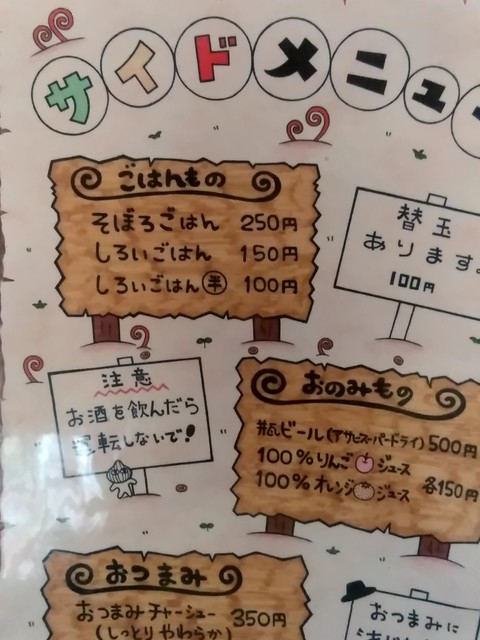 サイドメニュー
ごはんもの
そぼろごはん 250円
しろいごはん 150円
しろいごはん半 100円
替玉
あります。
100円
注意
お酒を飲んだら
運転しないで!
おのみもの
瓶ビール(アサヒスーパードライ)500円
100%りんごジュース
100%オレンジジュース 各150円
おつまみ
おつまみチャーシュー 350円
(しっとりやわらか)
おつまみに